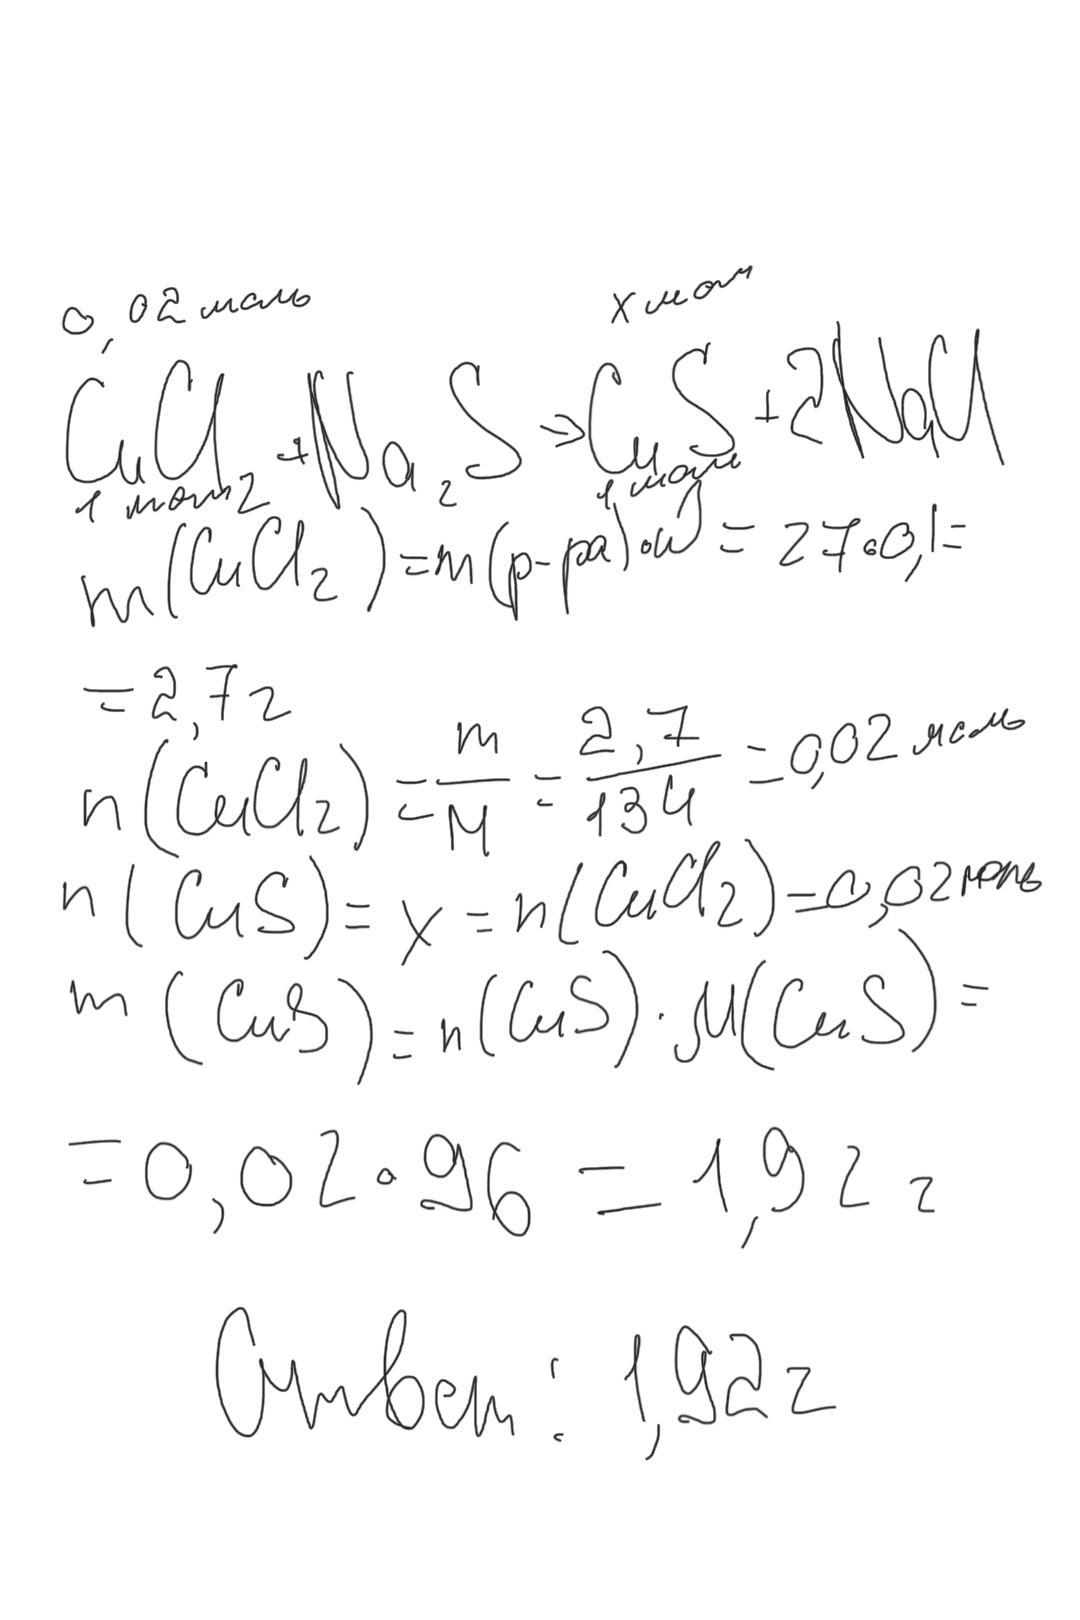 0,02 моль х моль
CuCl2 + Na2S => CuS + 2NaCl
1 моль 1 моль
m(CuCl2) = m(р-ра)·ω = 27·0,1=
= 2,7 г
n(CuCl2) = m/M = 2,7/134 = 0,02 моль
n(CuS) = х = n(CuCl2) = 0,02 моль
m(CuS) = n(CuS)·M(CuS) =
= 0,02·96 = 1,92 г
Ответ: 1,92 г